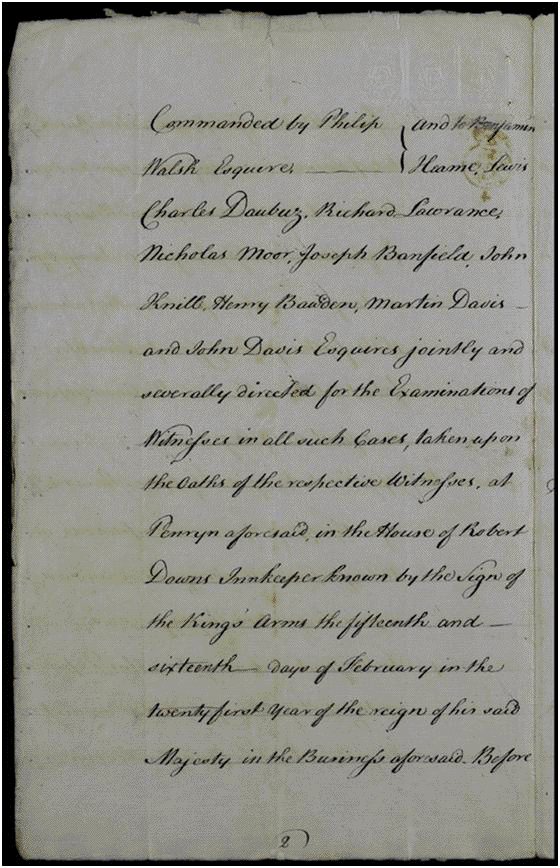 Commanded by Philip } and to Benjamin
Walsh Esquire, Heame, Lewis
Charles Daubuz, Richard Lawrance,
Nicholas Moor, Joseph Banfield, John
Knill, Henry Bawden, Martin Davis –
and John Davis Esquires jointly and
severally directed for the Examinations of
Witnesses in all such Cases, taken upon
the Oaths of the respective Witnesses, at
Penryn aforesaid, in the House of Robert
Downs Innkeeper known by the Sign of
the King's Arms the fifteenth and –
sixteenth days of February in the
twenty first Year of the reign of his said
Majesty in the Business aforesaid. Before
2